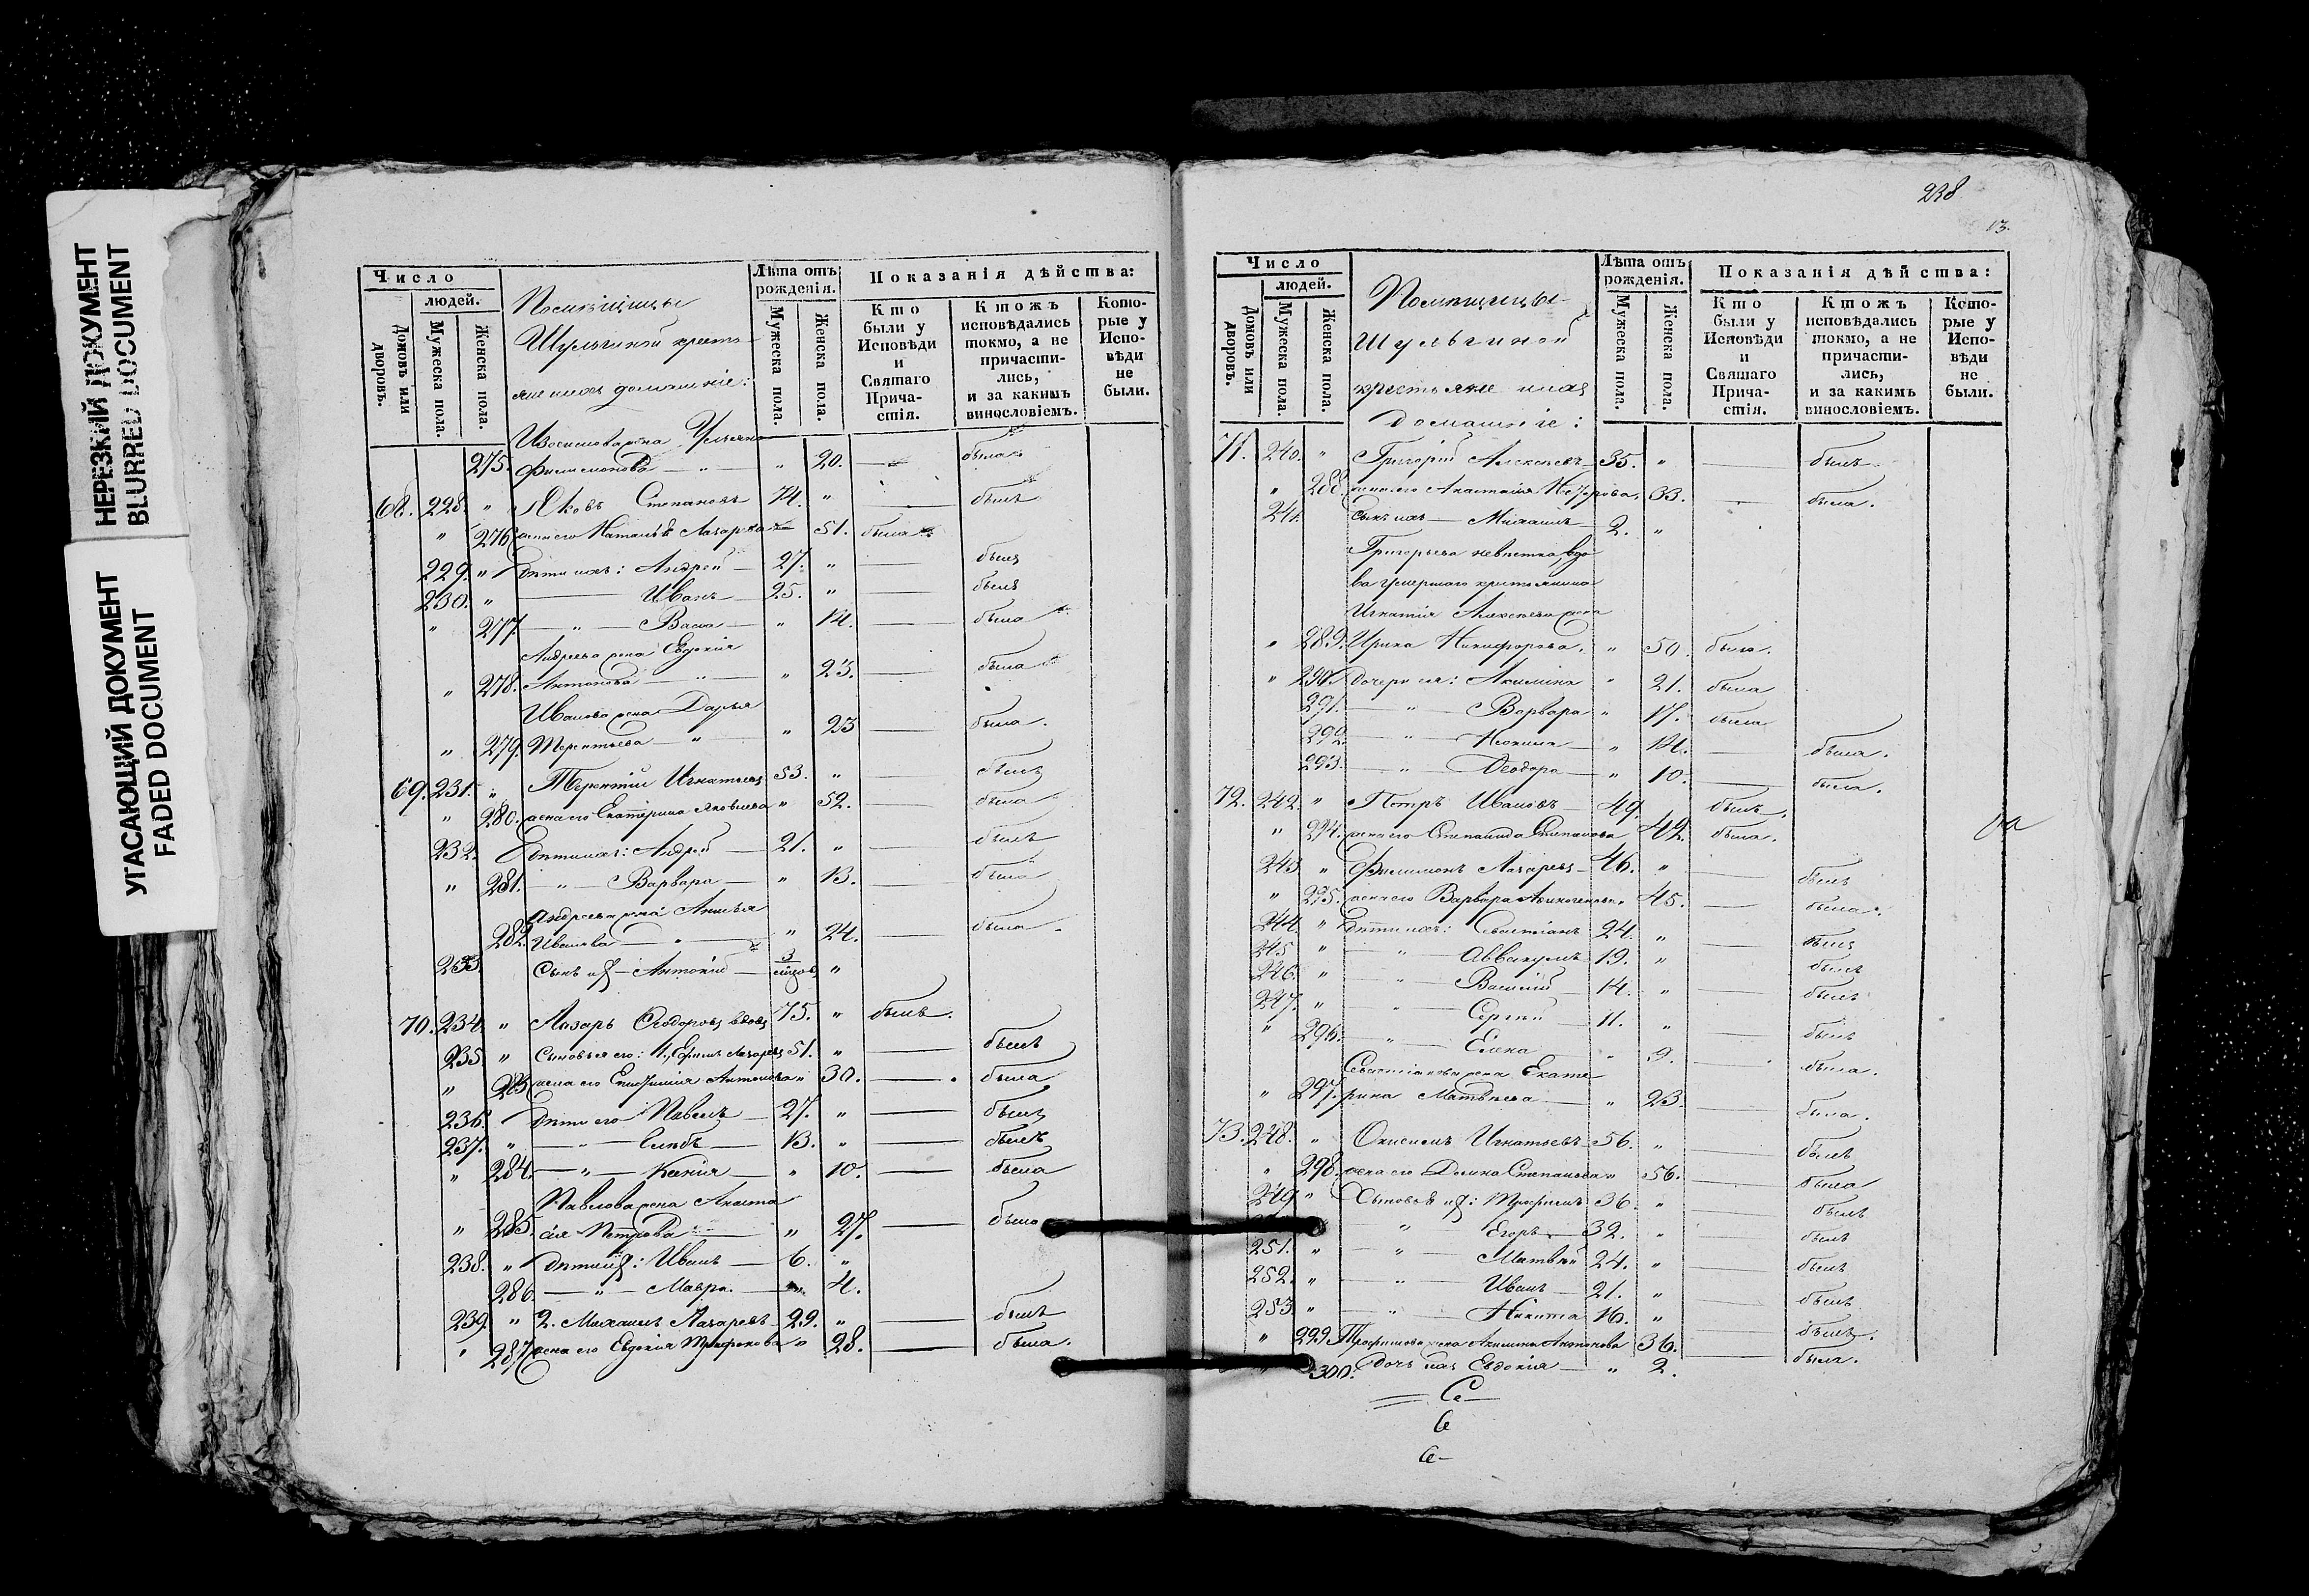 НЕРЕЗКИЙ ДОКУМЕНТ
BLURRED DOCUMENT
УГАСАЮЩИЙ ДОКУМЕНТ
FADED DOCUMENT
Число
людей.
Домовъ или дворовъ.
Мужеска пола.
Женска пола.
Помѣщицы
Шульгиной крестья-
Лѣта отъ рожденія.
Мужеска пола.
Женска пола.
Показанія дѣйства:
Кто были у Исповѣди и Святаго Причастія.
Ктожъ исповѣдались токмо, а не причасти-лись, и за какимъ винословіемъ.
Кото-рые у Испо-вѣди не были.
275. Филимонова — " — " 20. — была
68. 228. " Яковъ Степановъ 74. " — былъ
" 276. жена его Наталья Лазарева 51. была
229. " Дѣти ихъ: Андрей — 27. " — былъ
230. " — Иванъ — 25. " — былъ
" 277. — " — Васса — " 14. — была
Андреева жена Евдокія
" 278. Антонова — " — " 23. — была
Иванова жена Дарья
" 279. Терентьева — " — " 23 — была.
69. 231. " Терентій Игнатьевъ 53. " — былъ
" 280. жена его Екатерина Яковлева " 52. — была
232. Дѣти ихъ: Андрей — 21. " — былъ
" 281. — " — Варвара — " 13. — была
Андреева жена Анисья
282. Иванова — " — " 24. — была.
233. Сынъ их — Антоній — 3 "
70. 234. " Лазарь Ѳеодоровъ вдовъ 75. " былъ.
235. " Сыновья его: 1, Ефимъ Лазаревъ 51. " — былъ
" 283. жена его Антонова " 30. — была
236. Дѣти его Павелъ — 27. " — былъ
237. " — " — Глѣбъ — 13. " — былъ
" 284. — " — Ксенія — " 10. — была
Павлова жена Анаста
" 285. сія Петрова — " 27. — была
238. " Дѣти их: Иванъ — 6. "
286. — " — Мавра. — " 4.
239. " 2. Михаилъ Лазаревъ — 29. " — былъ
" 287. жена его Евдокія " 28. — была.
238
13.
Число
людей.
Домовъ или дворовъ.
Мужеска пола.
Женска пола.
Помѣщицы
Шульгиной
крестьяне и ихъ
домашніе:
Лѣта отъ рожденія.
Мужеска пола.
Женска пола.
Показанія дѣйства:
Кто были у Исповѣди и Святаго Прича-стія.
Ктожъ исповѣдались токмо, а не причасти-лись, и за какимъ винословіемъ.
Кото-рые у Испо-вѣди не были.
71. 240. " Григорій Алексѣевъ 35. " — былъ
" 288. жена его Анастасія 33. — была.
241. Сынъ ихъ — Михаилъ — 2. "
Григорьева невѣстка вдо
ва умершаго крестьянина
Игнатія Алексѣева жена
" 289. Ирина Никифорова. " 50. была.
" 290. Дочери ея: Акилина " 21. была
291. — " — Варвара " 17. была
292. — " — Неонила — " 14. — была.
293. — " — Ѳеодора — " 10. — была.
72. 242. " Петръ Ивановъ — 49. былъ.
" 294. жена его Степанида Степанова 42. была.
243. " Филимонъ Лазаревъ — 46. " — былъ
" 295. жена его Варвара 45. — была.
244. " Дѣти ихъ: Севастіанъ 24. " — былъ
245 " — " — Аввакумъ 19. " — былъ
246. " — " — Василій 14. " — былъ
247. " — " — Сергѣй 11. " — былъ
" 296. — " — Елена " 9. — была.
Севастіанова жена Екате
" 297. рина Матвѣева — " 23. — была.
73. 248. " Онисимъ Игнатьевъ 56. " — былъ
" 298. жена его Домна Степанова " 56. — была
249. " Сыновья их: Трофимъ 36. " — былъ
" Егоръ — 32. " — былъ
251. " — " — Матвѣй 24. " — былъ
252. " — " — Иванъ — 21. " — былъ
253. " — " — Никита 16. " — былъ.
" 299. Трофимова жена Акилина Антонова 36. — была.
300. Дочь ихъ Евдокія — " 2.